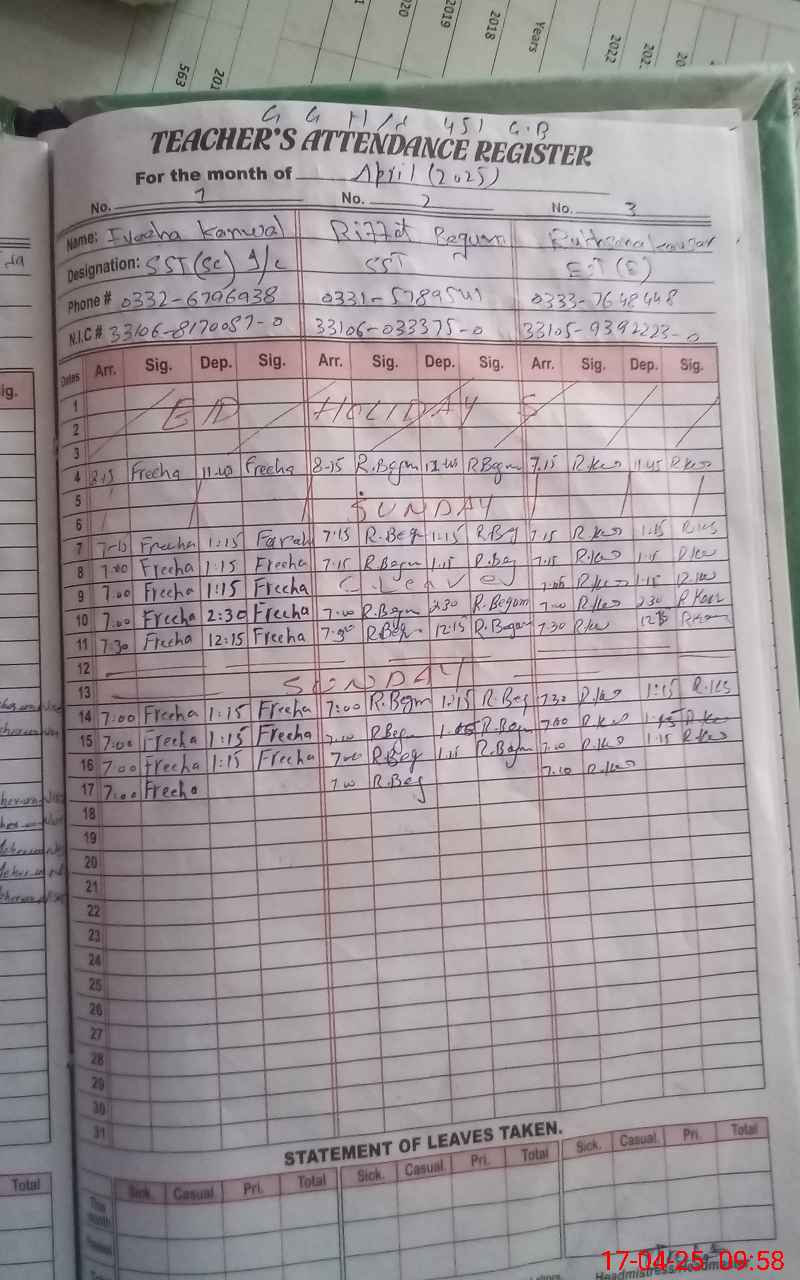 2018
2019
2020
Years
2022
563
G G H/S 451 G.B
TEACHER'S ATTENDANCE REGISTER
For the month of April (2025)
No. 1 No. 2 No. 3
Name: Kanwal Riffat Begum
Designation: SST (Sc) I/c SST EST (E)
Phone # 0332-6796938 0331-5789541 0333-7648448
N.I.C # 33106-8170057-0 33106-033375-0 33105-9392223-0
Dates Arr. Sig. Dep. Sig. Arr. Sig. Dep. Sig. Arr. Sig. Dep. Sig.
1 EID HOLIDAY S
2
3
4 8:15 Freeha 11:40 Freeha 8-15 R.Begm R Begm 7.15 R.Kes 11:45 R Kes
5
6 SUNDAY
7 Freeha 1:15 Farah 7:15 R.Beg 1:15 R.Beg 7.15 R.Kes 1:15
8 7:00 Freeha 1:15 Freeha 7:15 R.Begm 1.15 R.Beg 7:15 R.Kes
9 7:00 Freeha 1:15 Freeha C. Leave 1:15
10 7:00 Freeha 2:30 Freeha 7:00 R.Begm 2:30 R.Begum 7:00 R.Kes 2:30
11 7:30 Freeha 12:15 Freeha 7:30 R.Beg 12:15 R.Begam 7:30 R.Kes
12
13 SUNDAY
14 7:00 Freeha 1:15 Freeha 7:00 R.Begm 1:15 R.Beg 7:30 R.Kes 1:15 R.Kes
15 7:00 Freeha 1:15 Freeha 7:00 R.Begm R.Begm 7:00 R.Kes 1:15 R.Kes
16 7:00 Freeha 1:15 Freeha 7:00 R.Beg 1:15 R.Begm 7:00 R.Kes 1:15 R.Kes
17 7:00 Freeha 7:00 R.Beg 7:10 R.Kes
18
19
20
21
22
23
24
25
26
27
28
29
30
31
STATEMENT OF LEAVES TAKEN.
Sick. Casual. Pri. Total Sick. Casual. Pri. Total Sick. Casual. Pri. Total
This month
Total
Headmistress/Headmaster
17-04-25 09:58